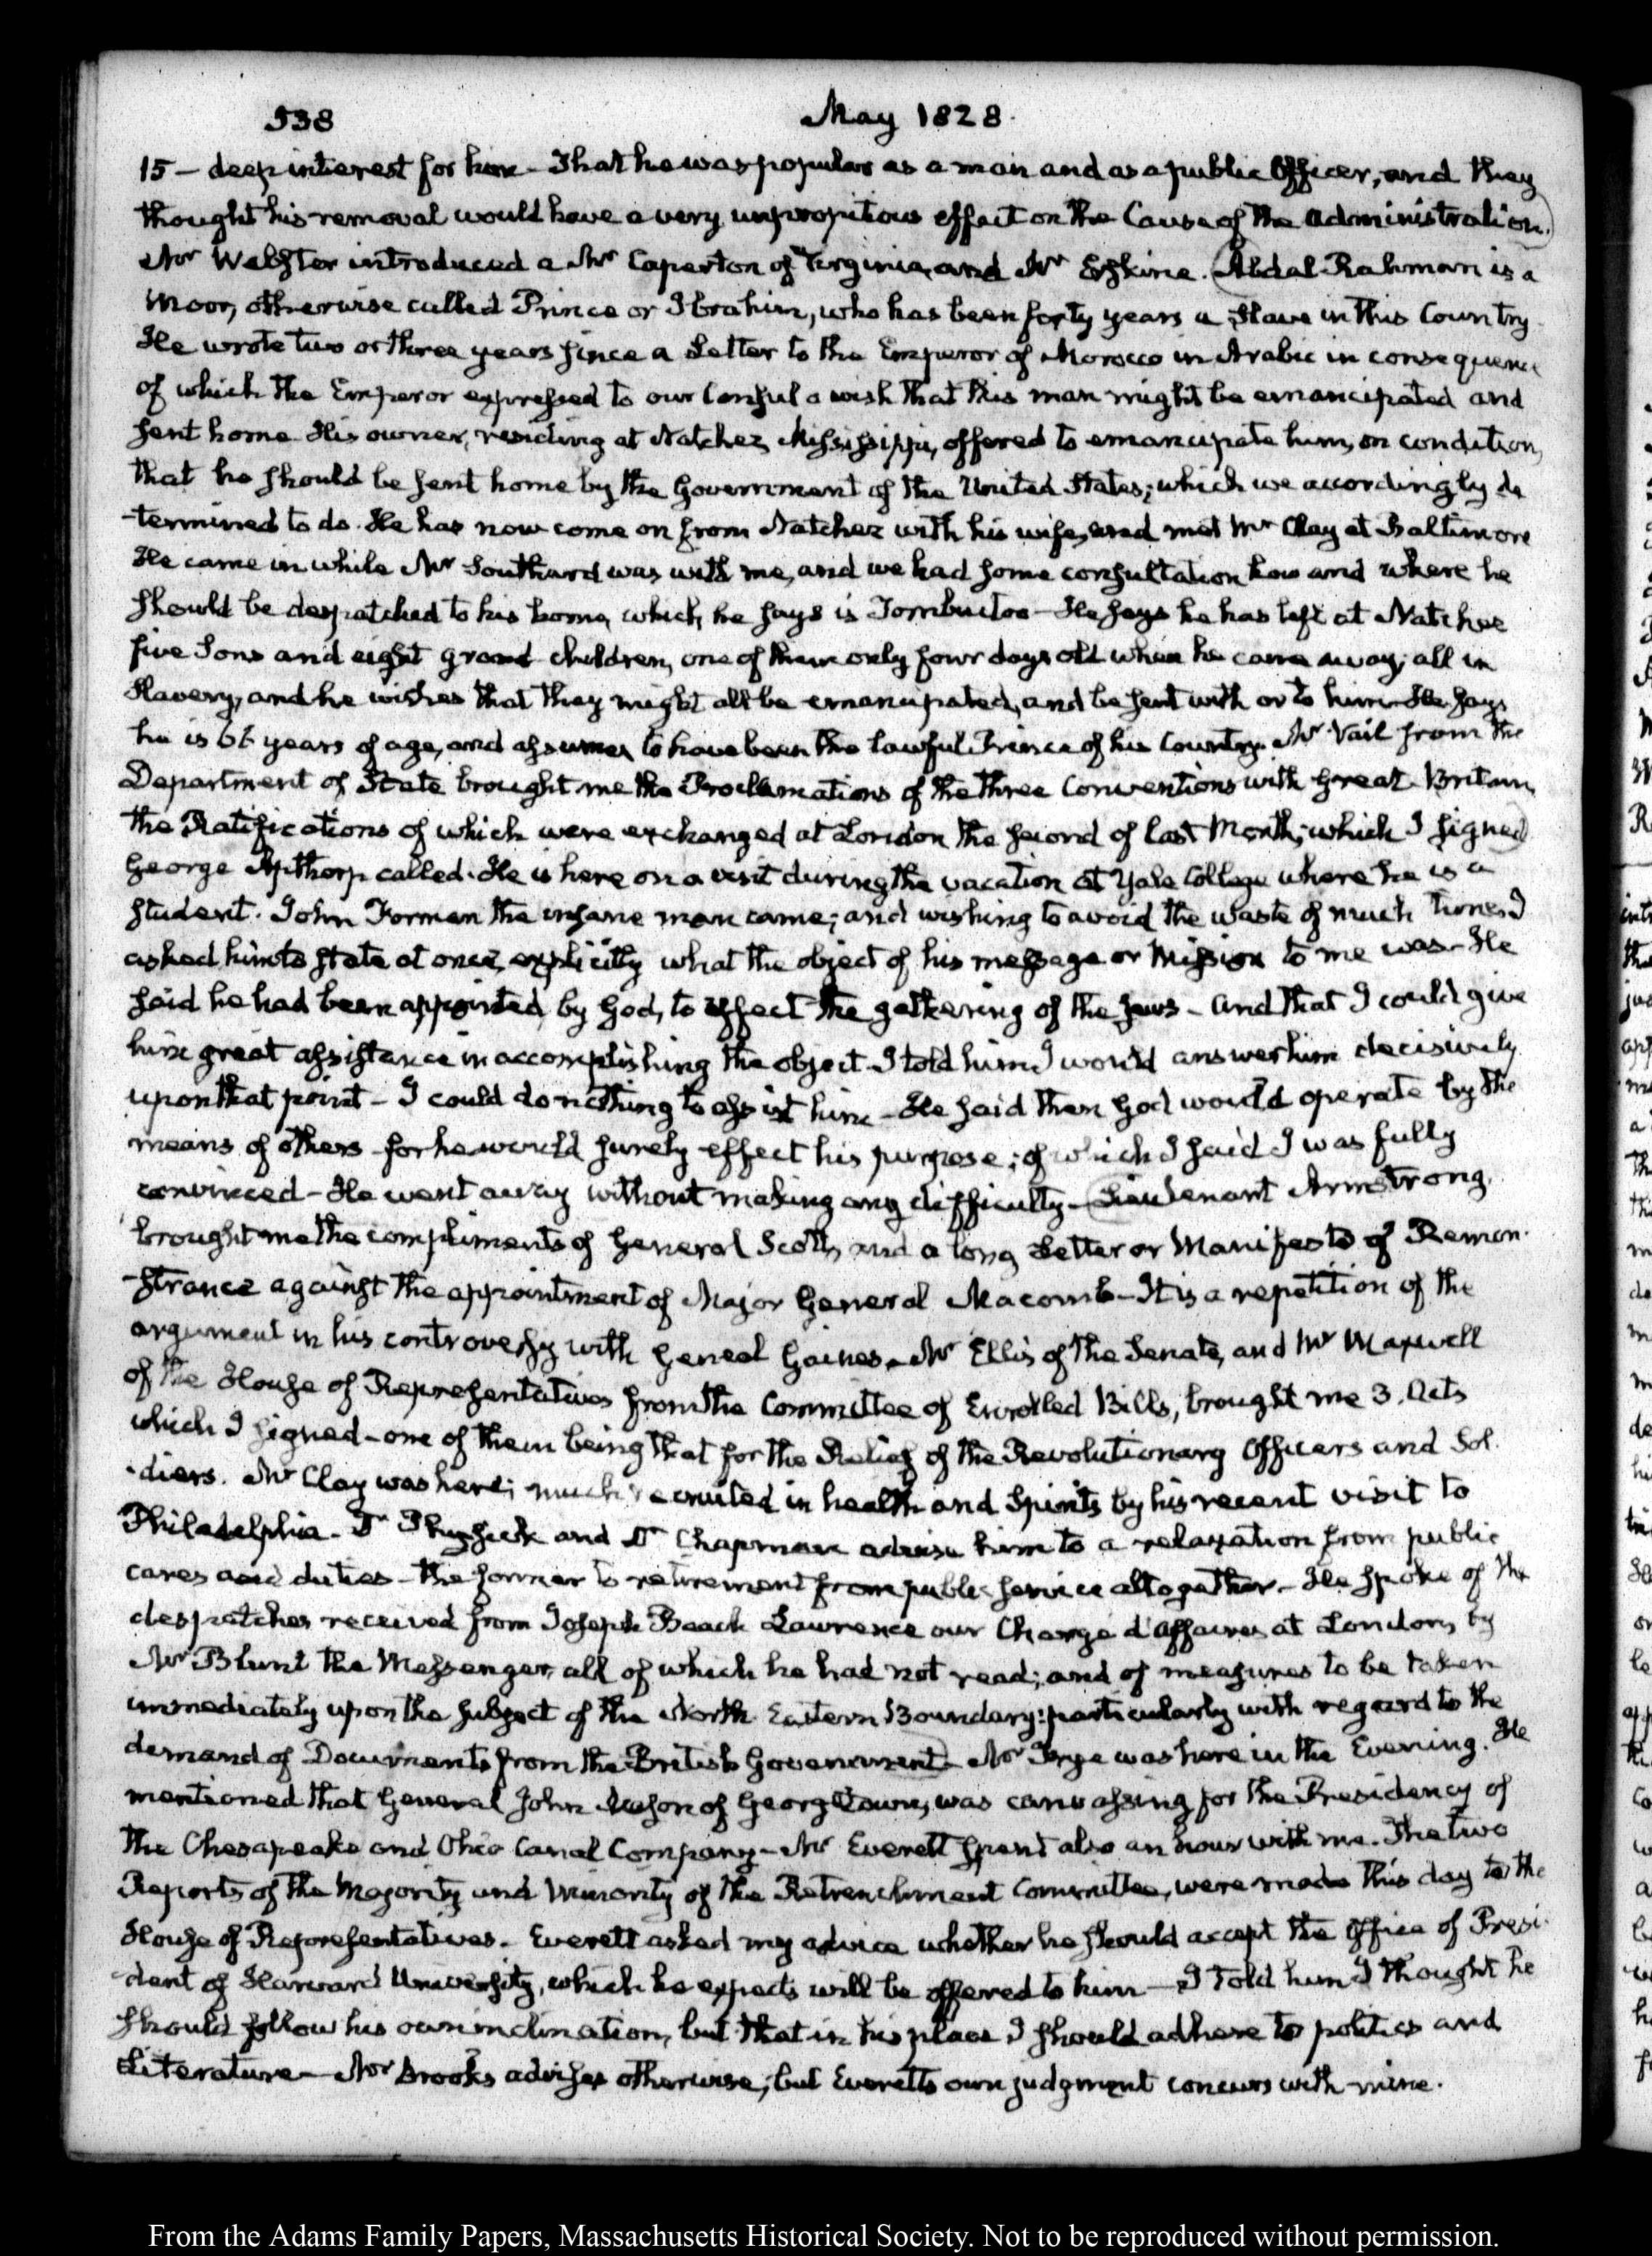 538 May 1828.
15 - deep interest for him - That he was popular as a man and as a public Officer, and they
thought his removal would have a very unpropitious effect on the Cause of the administration.
Mr Webster introduced a Mr Caperton of Virginia, and Mr Erskine. Abdal Rahman is a
Moor, otherwise called Prince or Ibrahim, who has been forty years a Slave in this Country.
He wrote two or three years since a Letter to the Emperor of Morocco in Arabic in consequence
of which the Emperor expressed to our Consul a wish that this man might be emancipated and
sent home. His owner, residing at Natchez Mississippi, offered to emancipate him, on condition,
that he should be sent home by the Government of the United States; which we accordingly de
-termined to do. He has now come on from Natchez with his wife, and met Mr Clay at Baltimore
He came in while Mr Southard was with me, and we had some consultation how and where he
should be despatched to his home, which he says is Tombuctoo - He says he has left at Natchez
five Sons and eight grand children, one of them only four days old when he came away; all in
Slavery, and he wishes that they might all be emancipated, and be sent with or to him. He says
he is 66 years of age, and assumes to have been the lawful Prince of his Country. Mr Vail from the
Department of State brought me the Proclamations of the three Conventions with Great Britain,
the Ratifications of which were exchanged at London the second of last Month; which I signed
George Apthorp called. He is here on a visit during the vacation at Yale College where he is a
student. John Forman the insane man came; and wishing to avoid the waste of much time, I
asked him to state at once, explicitly what the object of his message or Mission to me was - He
said he had been appointed by God, to effect the gathering of the Jews - and that I could give
him great assistance in accomplishing the object. I told him I would answer him decisively
upon that point - I could do nothing to assist him - He said then God would operate by the
means of others for he would surely effect his purpose; of which I said I was fully
convinced - He went away without making any difficulty - Lieutenant Armstrong,
brought me the compliments of General Scott, and a long Letter or Manifesto of Remon-
-strance against the appointment of Major General Macomb - It is a repetition of the
argument in his controversy with General Gaines. Mr Ellis of the Senate, and Mr Maxwell
of the House of Representatives from the Committee of Enrolled Bills, brought me 3. Acts
which I signed - one of them being that for the Relief of the Revolutionary Officers and Sol-
-diers. Mr Clay was here; much recruited in health and Spirits by his recent visit to
Philadelphia - Dr Physick and Dr Chapman advise him to a relaxation from public
cares and duties - the former to retirement from public service altogether - He spoke of the
despatches received from Joseph Beach Lawrence our Chargé d'Affaires at London, by
Mr Blunt the Messenger, all of which he had not read; and of measures to be taken
immediately upon the subject of the North Eastern Boundary: particularly with regard to the
demand of Documents from the British Government - Mr Frye was here in the Evening. He
mentioned that General John Mason of Georgetown, was canvassing for the Presidency of
the Chesapeake and Ohio Canal Company - Mr Everett spent also an hour with me. The two
Reports of the Majority and Minority of the Retrenchment Committee, were made this day to the
House of Representatives - Everett asked my advice whether he should accept the Office of Presi-
-dent of Harvard University, which he expects will be offered to him - I told him I thought he
should follow his own inclination, but that in his place I should adhere to politics and
Literature - Mr Brooks advises otherwise; but Everetts own judgment concurs with mine.
From the Adams Family Papers, Massachusetts Historical Society. Not to be reproduced without permission.